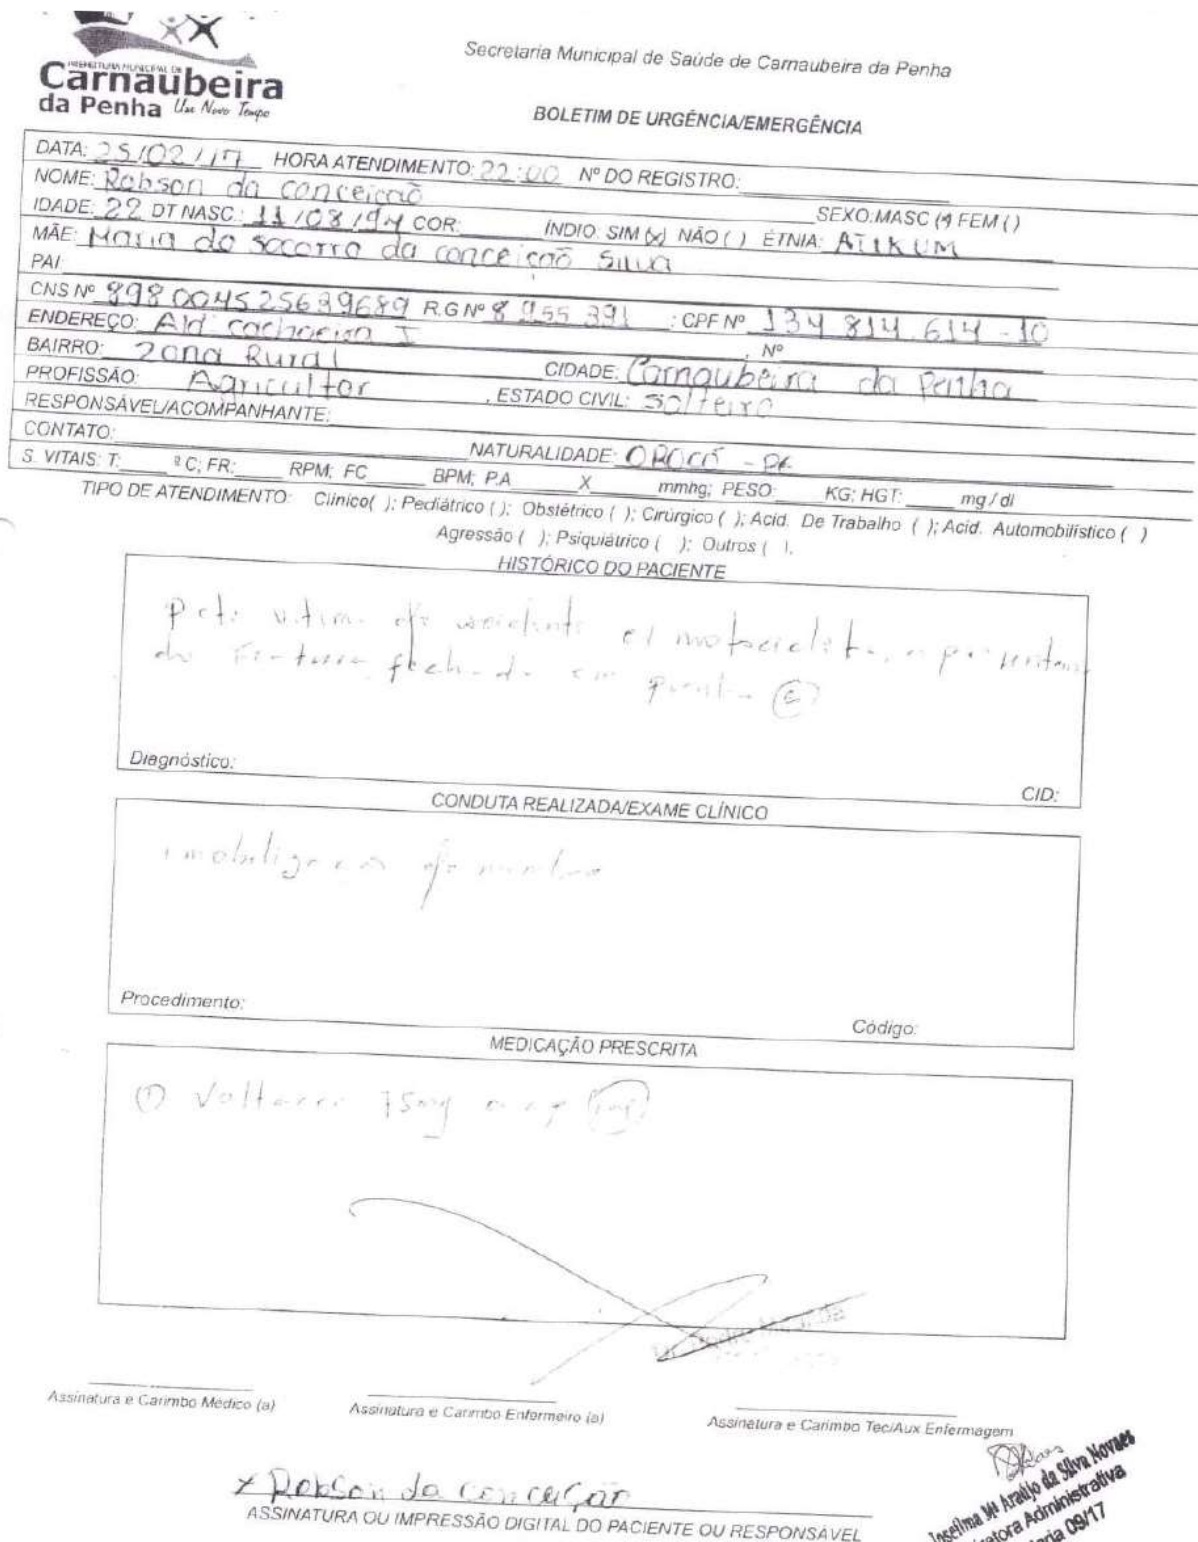 PREFEITURA MUNICIPAL DE
Carnaubeira
da Penha Um Novo Tempo
Secretaria Municipal de Saúde de Carnaubeira da Penha
BOLETIM DE URGÊNCIA/EMERGÊNCIA
DATA: 25/02/17 HORA ATENDIMENTO: 22:00 Nº DO REGISTRO:
NOME: Robson da conceição SEXO: MASC (x) FEM ( )
IDADE: 22 DT NASC.: 11/08/94 COR: ÍNDIO: SIM (x) NÃO ( ) ÉTNIA: ATIKUM
MÃE: Maria do socorro da conceição Silva
PAI:
CNS Nº 898004525639689 R.G Nº 8 955 391 ; CPF Nº 134 814.614-10
ENDEREÇO: Ald cachoeira I , Nº
BAIRRO: Zona Rural CIDADE: Carnaubeira da Penha
PROFISSÃO: Agricultor , ESTADO CIVIL: Solteiro
RESPONSÁVEL/ACOMPANHANTE:
CONTATO: NATURALIDADE: OROCÓ - PE
S. VITAIS: T: º C; FR: RPM; FC BPM; P.A X mmhg; PESO: KG; HGT: mg / dl
TIPO DE ATENDIMENTO: Clínico( ); Pediátrico ( ); Obstétrico ( ); Cirúrgico ( ); Acid. De Trabalho ( ); Acid. Automobilístico ( )
Agressão ( ); Psiquiátrico ( ); Outros ( ).
HISTÓRICO DO PACIENTE
vitima de acidente c/ motocicleta, apresentan
do Fratura fechada em (E)
Diagnóstico: CID:
CONDUTA REALIZADA/EXAME CLÍNICO
imobilização do membro
Procedimento: Código:
MEDICAÇÃO PRESCRITA
① Voltaren 75mg
Assinatura e Carimbo Médico (a)
Assinatura e Carimbo Enfermeiro (a)
Assinatura e Carimbo Tec/Aux Enfermagem
x Robson da conceição
ASSINATURA OU IMPRESSÃO DIGITAL DO PACIENTE OU RESPONSÁVEL
Joselma Mª Araújo da Silva Novaes
Diretora Administrativa
Portaria 09/17